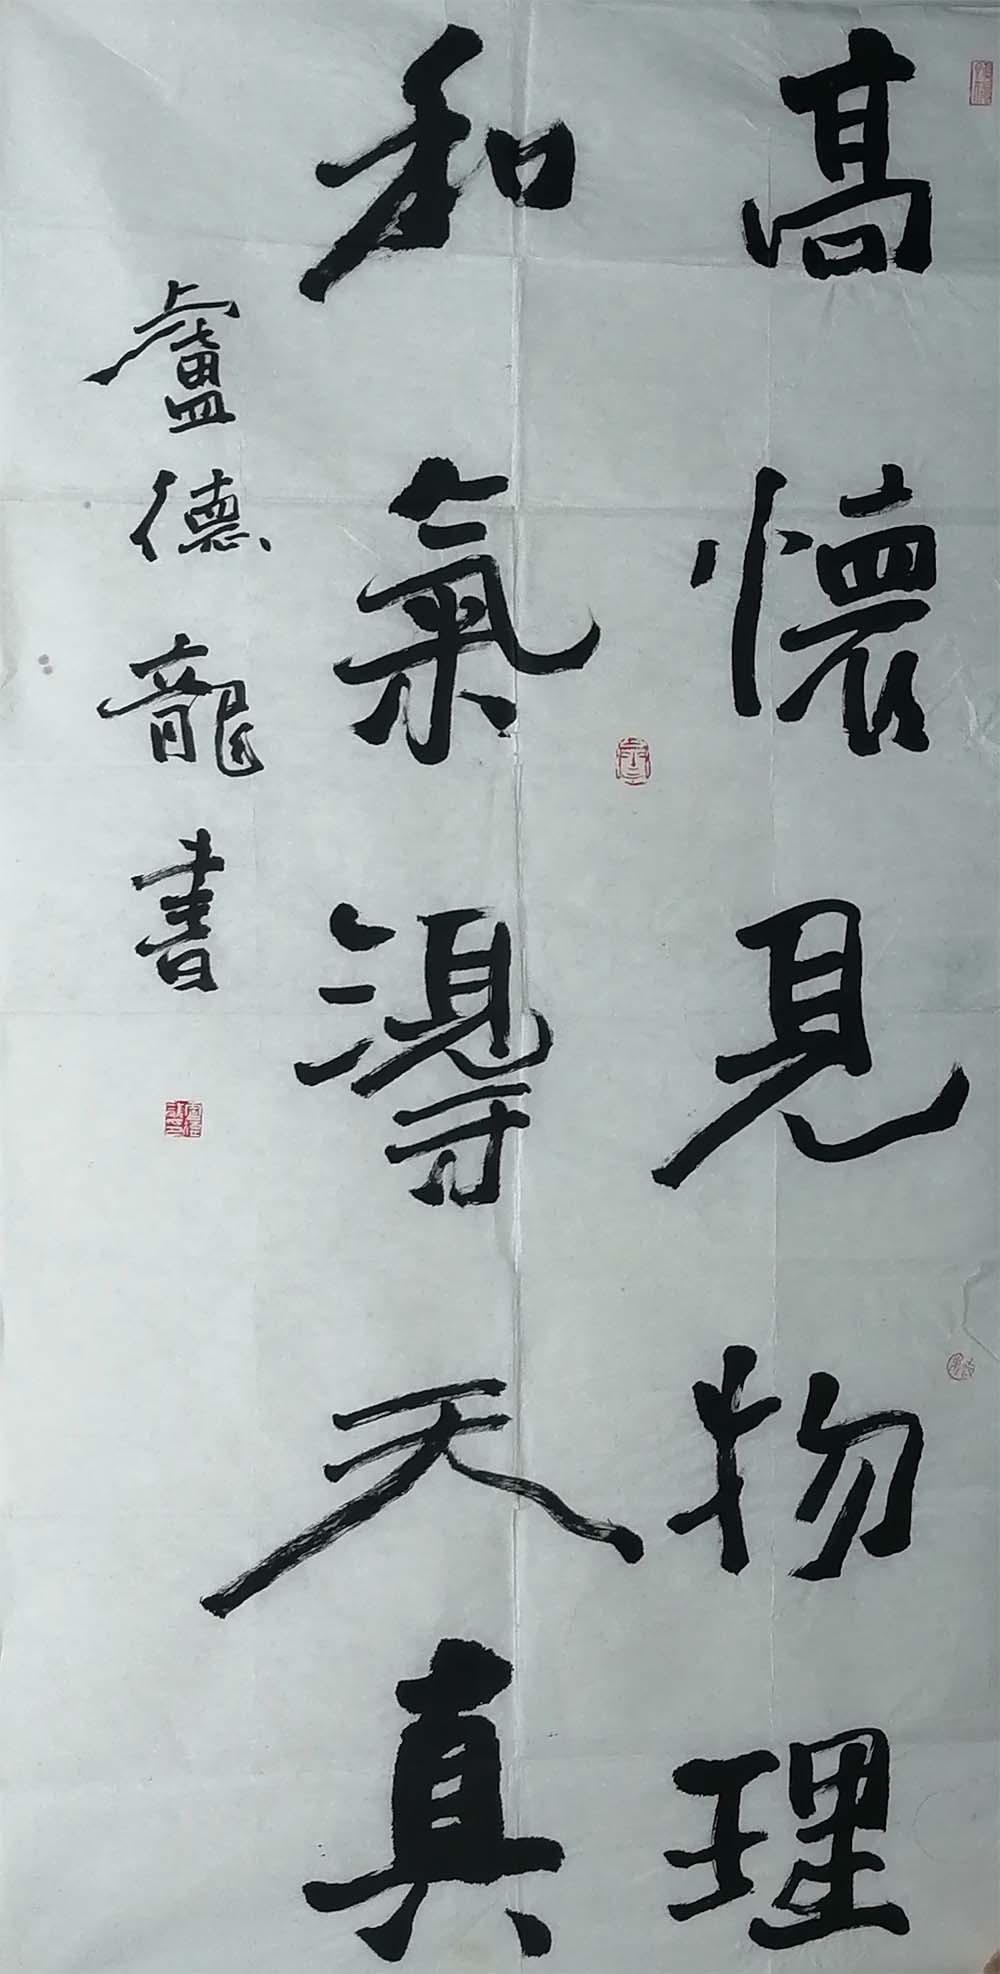 高懷見物理
和氣得天真
盧德龍書